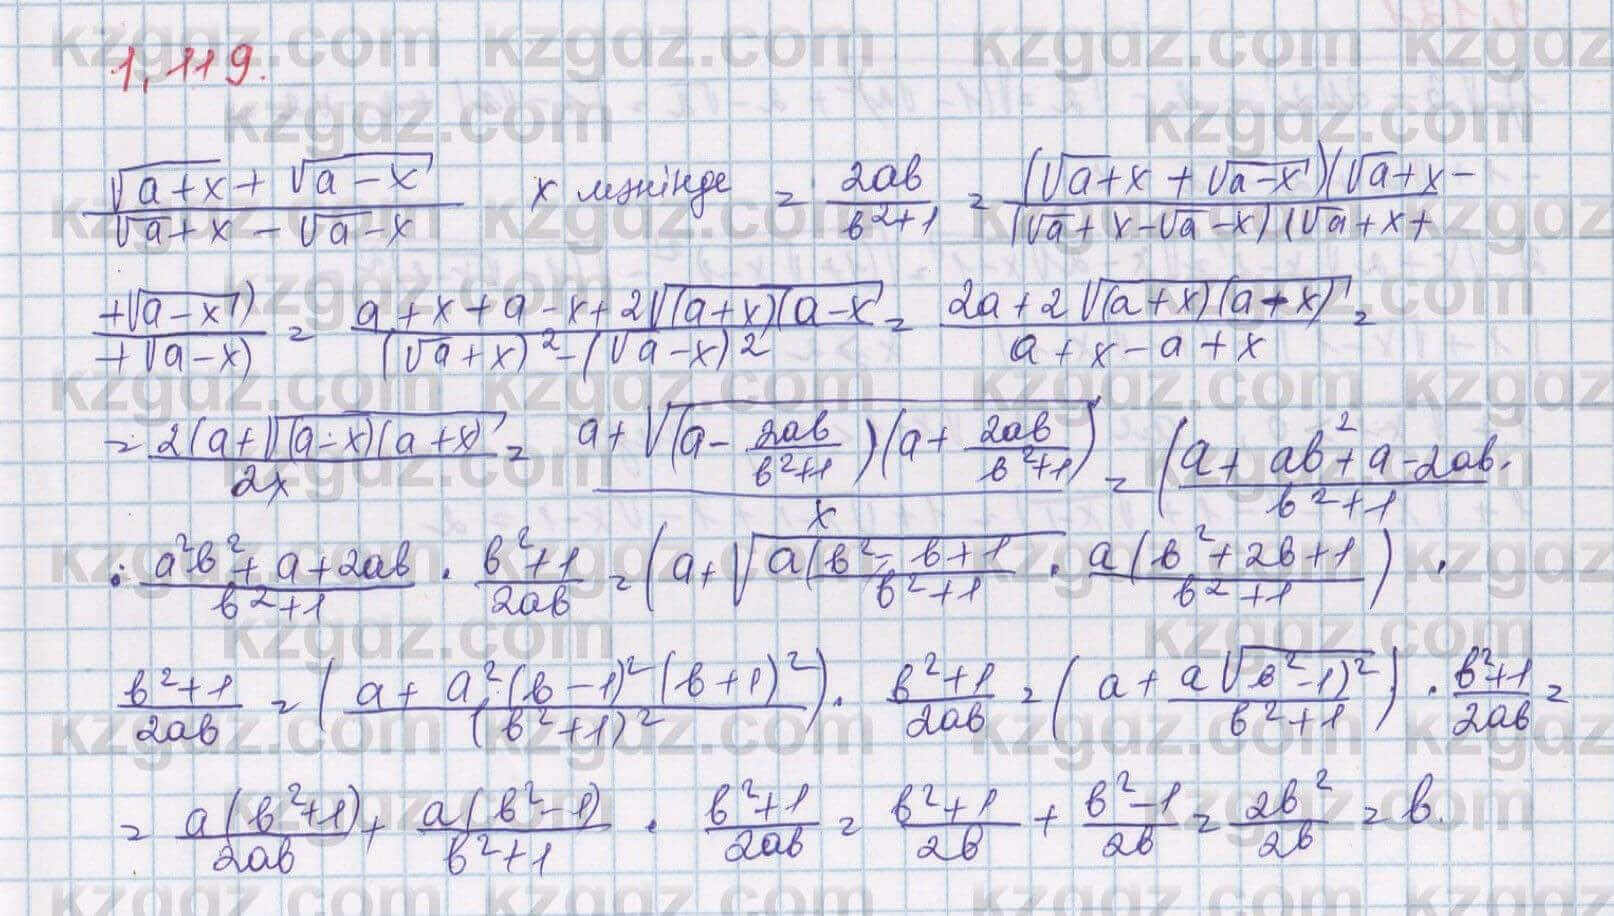 1,119.
\frac{\sqrt{a+x}+\sqrt{a-x}}{\sqrt{a}+x-\sqrt{a}-x} x мәнінде = \frac{2ab}{b^2+1} = \frac{(\sqrt{a}+x+\sqrt{a-x})(\sqrt{a}+x-}{(\sqrt{a}+x-\sqrt{a}-x)(\sqrt{a}+x+}
\frac{+\sqrt{a-x})}{+\sqrt{a-x})} = \frac{a+x+a-x+2\sqrt{(a+x)(a-x}}{(\sqrt{a}+x)^2-(\sqrt{a}-x)2} = \frac{2a+2\sqrt{(a+x)(a+x)}}{a+x-a+x} =
= \frac{2(a+\sqrt{(a-x)(a+x)}}{2x} = \frac{a+\sqrt{(a-\frac{2ab}{b^2+1})(a+\frac{2ab}{b^2+1})}}{x} = (\frac{a+ab^2+a-2ab}{b^2+1} ·
: \frac{a^2b^2+a+2ab}{b^2+1} · \frac{b^2+1}{2ab} = (a+\sqrt{\frac{a(b^2-b+1}{b^2+1}} · \frac{a(b^2+2b+1}{b^2+1}) ·
\frac{b^2+1}{2ab} = (\frac{a+a^2·(b-1)^2(b+1)^2}{(b^2+1)^2}) · \frac{b^2+1}{2ab} = (a+\frac{a\sqrt{b^2-1)^2}}{b^2+1}) · \frac{b^2+1}{2ab} =
= \frac{a(b^2+1)}{2ab} + \frac{a(b^2-1)}{b^2+1} · \frac{b^2+1}{2ab} = \frac{b^2+1}{2b} + \frac{b^2-1}{2b} = \frac{2b^2}{2b} = b.
kzgdz.com